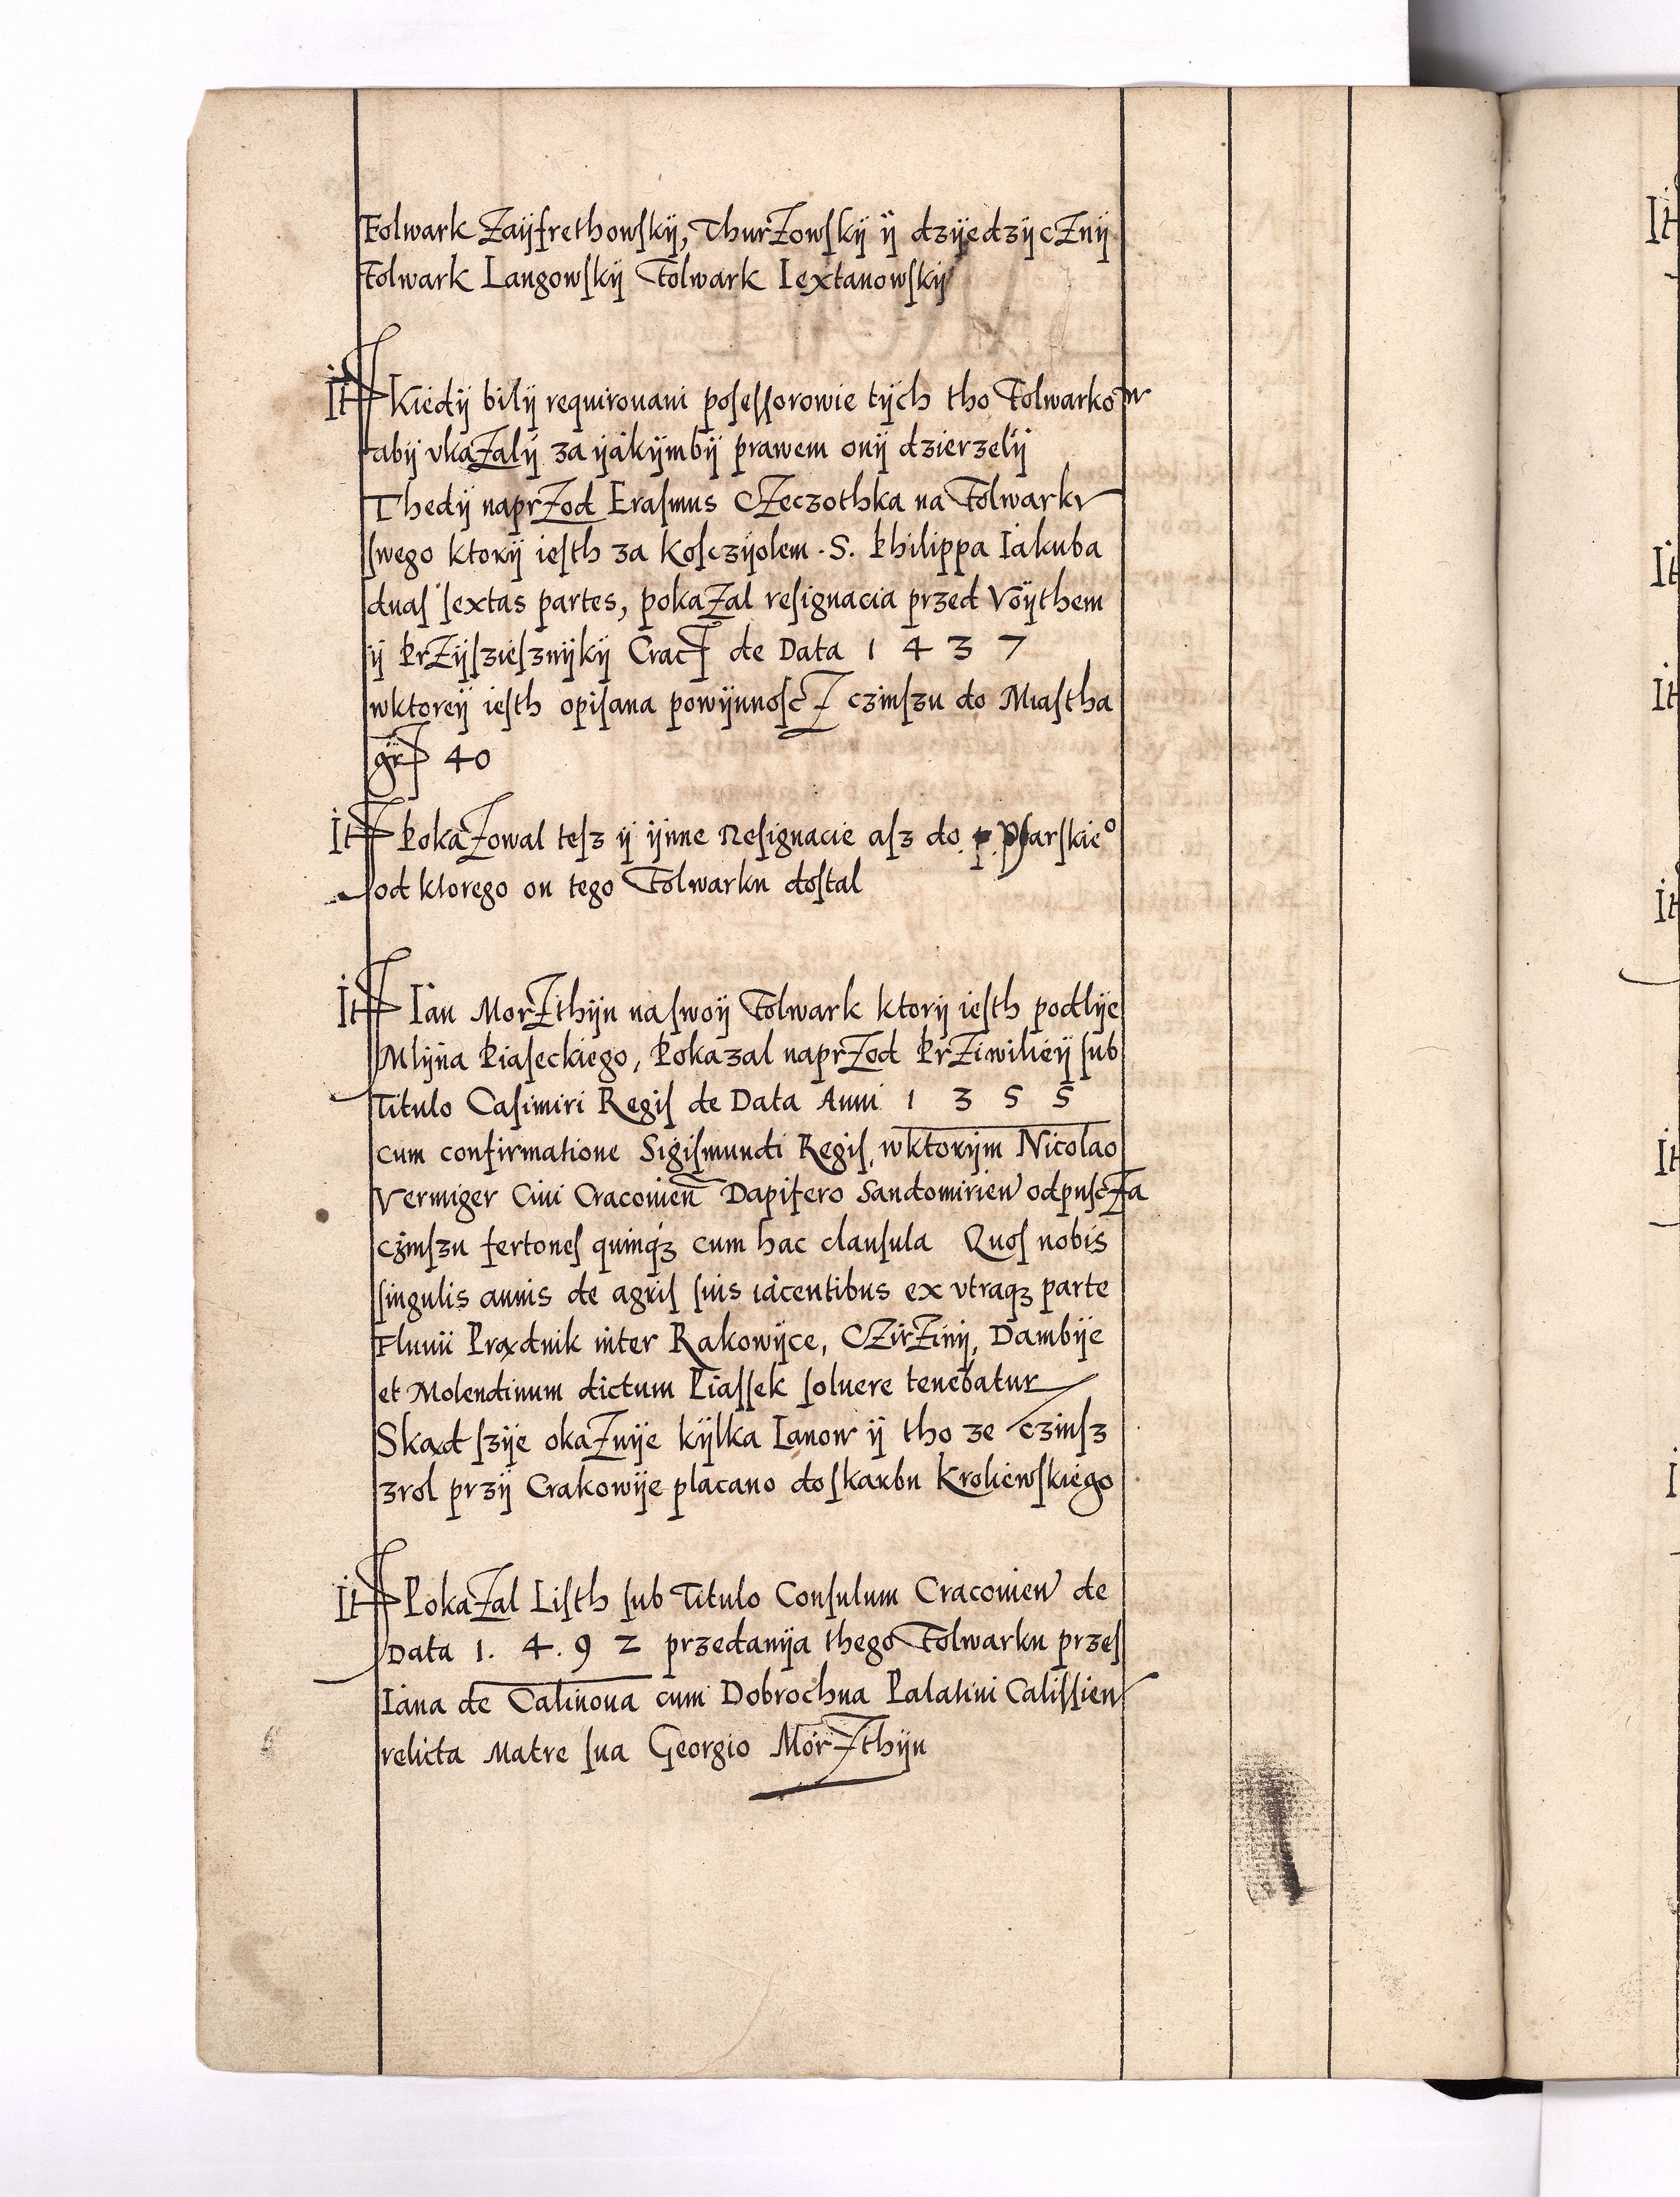 Folwark Zaÿfrethowskÿ, Thurzowskÿ ÿ dzÿedzÿcznÿ
Folwark Langowskÿ Folwark Iextanowskÿ
It Kiedÿ bilÿ requirouani posessorowie tÿch tho Folwarkow
abÿ vkazalÿ za ÿakÿmbÿ prawem onÿ dzierzelÿ
Thedÿ naprzod Erasmus Czeczothka na Folwarkv
swego ktorÿ iesth za kosczÿolem . S. Philippa Iakuba
duas sextas partes, pokazal resignacia przed Voÿthem
ÿ Przÿsziesznÿkÿ Crac de Data 1 4 3 7
wktoreÿ iesth opisana powÿnnoscz czinszu do Miastha
gr 40
It Pokazowal tesz ÿ ÿnne Resignacie asz do p. Psarskie°
od ktorego on tego Folwarku dostal
It Ian Morzthÿn na swoÿ Folwark ktorÿ iesth podlÿe
Mlÿna Piaseckiego, Pokazal naprzod Prziwilieÿ sub
Titulo Casimiri Regis de Data Anni 1 3 5 5
cum confirmatione Sigismundi Regis, wktorÿm Nicolao
Vermiger Ciui Cracouien Dapifero Sandomirien odpuscza
czinszu fertones quinqꝫ cum hac clausula Quos nobis
singulis annis de agris suis iacentibus ex vtraqꝫ parte
Fluuii Prądnik inter Rakowÿce, Czirzinÿ, Dambÿe
et Molendinum dictum Piassek soluere tenebatur
Skąd szÿe okaznÿe kÿlka Ianow ÿ tho ze czinsz
zrol przÿ Crakowÿe placano do skarbu Kroliewskiego
It Pokazal Listh sub Titulo Consulum Cracouien de
Data 1. 4. 9 2 przedanÿa thego Folwarku przes
Iana de Calinoua cum Dobrochna Palatini Calissien
relicta Matre sua Georgio Morzthÿn
It
It
It
It
It